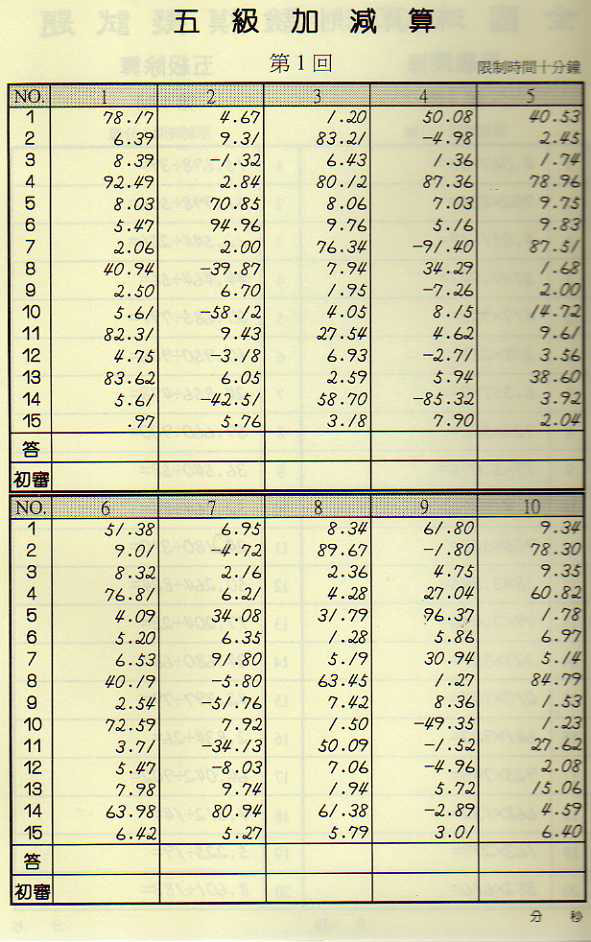 五級加減算
第1回
限制時間十分鐘
NO. 1 2 3 4 5
1 78.17 4.67 1.20 50.08 40.53
2 6.39 9.31 83.21 -4.98 2.45
3 8.39 -1.32 6.43 1.36 1.74
4 92.49 2.84 80.12 87.36 78.96
5 8.03 70.85 8.06 7.03 9.75
6 5.47 94.96 9.76 5.16 9.83
7 2.06 2.00 76.34 -91.40 87.51
8 40.94 -39.87 7.94 34.29 1.68
9 2.50 6.70 1.95 -7.26 2.00
10 5.61 -58.12 4.05 8.15 14.72
11 82.31 9.43 27.54 4.62 9.61
12 4.75 -3.18 6.93 -2.71 3.56
13 83.62 6.05 2.59 5.94 38.60
14 5.61 -42.51 58.70 -85.32 3.92
15 .97 5.76 3.18 7.90 2.04
答
初審
NO. 6 7 8 9 10
1 51.38 6.95 8.34 61.80 9.34
2 9.01 -4.72 89.67 -1.80 78.30
3 8.32 2.16 2.36 4.75 9.35
4 76.81 6.21 4.28 27.04 60.82
5 4.09 34.08 31.79 96.37 1.78
6 5.20 6.35 1.28 5.86 6.97
7 6.53 91.80 5.19 30.94 5.14
8 40.19 -5.80 63.45 1.27 84.79
9 2.54 -51.76 7.42 8.36 1.53
10 72.59 7.92 1.50 -49.35 1.23
11 3.71 -34.13 50.09 -1.52 27.62
12 5.47 -8.03 7.06 -4.96 2.08
13 7.98 9.74 1.94 5.72 15.06
14 63.98 80.94 61.38 -2.89 4.59
15 6.42 5.27 5.79 3.01 6.40
答
初審
分 秒